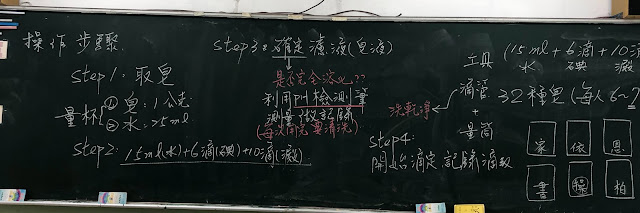 操作步驟
step1:取皂
量杯 ①皂:1公克
②水:25ml
step2: 15ml(水)+6滴(碘)+10滴(澱)
step3:確定濾液(皂液)
是否完全溶化??
利用pH檢測筆
測量做記錄
(每次用完要清洗)
step4:
開始滴定記錄滴數
工具 (15ml+6滴+10滴
水 碘 澱
洗乾淨 滴管 32種皂(每人6~7
量筒
家 依 恩
書 楹 柏